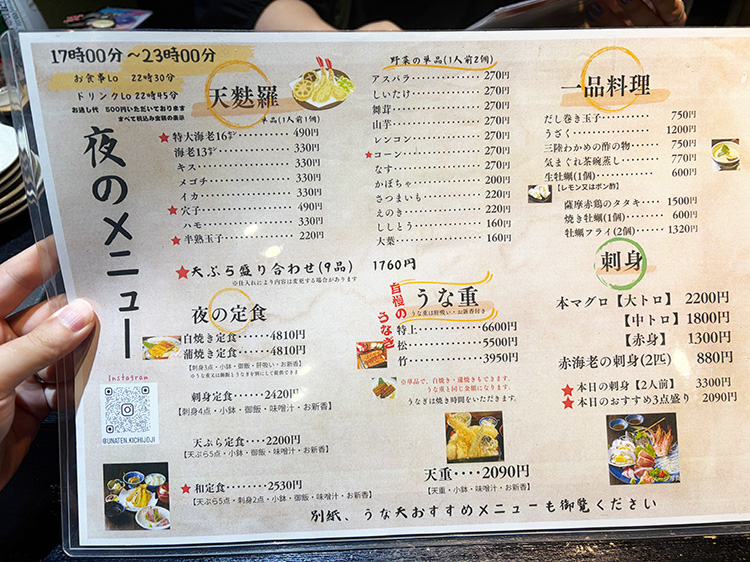 17時00分 〜23時00分
お食事Lo 22時30分
ドリンクLo 22時45分
お通し代 500円いただいております
すべて税込み金額の表示
夜のメニュー
天麩羅
単品(1人前1個)
★特大海老16㌢ 490円
海老13㌢ 330円
キス 330円
メゴチ 330円
イカ 330円
★穴子 490円
ハモ 330円
★半熟玉子 220円
野菜の単品(1人前2個)
アスパラ 270円
しいたけ 270円
舞茸 270円
山芋 270円
レンコン 270円
★コーン 270円
なす 270円
かぼちゃ 200円
さつまいも 220円
えのき 220円
ししとう 160円
大葉 160円
★天ぷら盛り合わせ(9品) 1760円
※仕入れにより内容は変更する場合があります
一品料理
だし巻き玉子 750円
うざく 1200円
三陸わかめの酢の物 750円
気まぐれ茶碗蒸し 770円
生牡蠣(1個) 600円
【レモン又はポン酢】
薩摩赤鶏のタタキ 1500円
焼き牡蠣(1個) 600円
牡蠣フライ(2個) 1320円
夜の定食
白焼き定食‥‥4810円
蒲焼き定食‥‥4810円
【刺身3点・小鉢・御飯・肝吸い・お新香】
※うな重又は御飯とうなぎを別にして提供できます
刺身定食‥‥2420円
【刺身4点・小鉢・御飯・味噌汁・お新香】
天ぷら定食‥‥2200円
【天ぷら5点・小鉢・御飯・味噌汁・お新香】
★和定食‥‥2530円
【天ぷら5点・刺身2点・小鉢・御飯・味噌汁・お新香】
Instagram
@UNATEN.KICHIJOJI
自慢のうなぎ
うな重
うな重は肝吸い・お新香付き
特上 6600円
松 5500円
竹 3950円
※単品で、白焼き・蒲焼きもできます。
うな重と同じ金額になります。
うなぎは焼き時間をいただきます。
天重‥‥2090円
【天重・小鉢・味噌汁・お新香】
刺身
本マグロ【大トロ】 2200円
【中トロ】 1800円
【赤身】 1300円
赤海老の刺身(2匹) 880円
★本日の刺身【2人前】 3300円
★本日のおすすめ3点盛り 2090円
別紙、うな天おすすめメニューも御覧ください